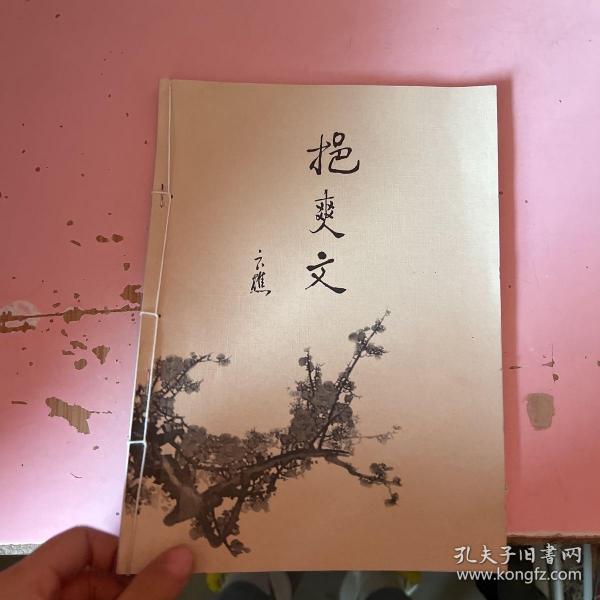 挹爽文
云樵
孔夫子旧書网
www.kongfz.com